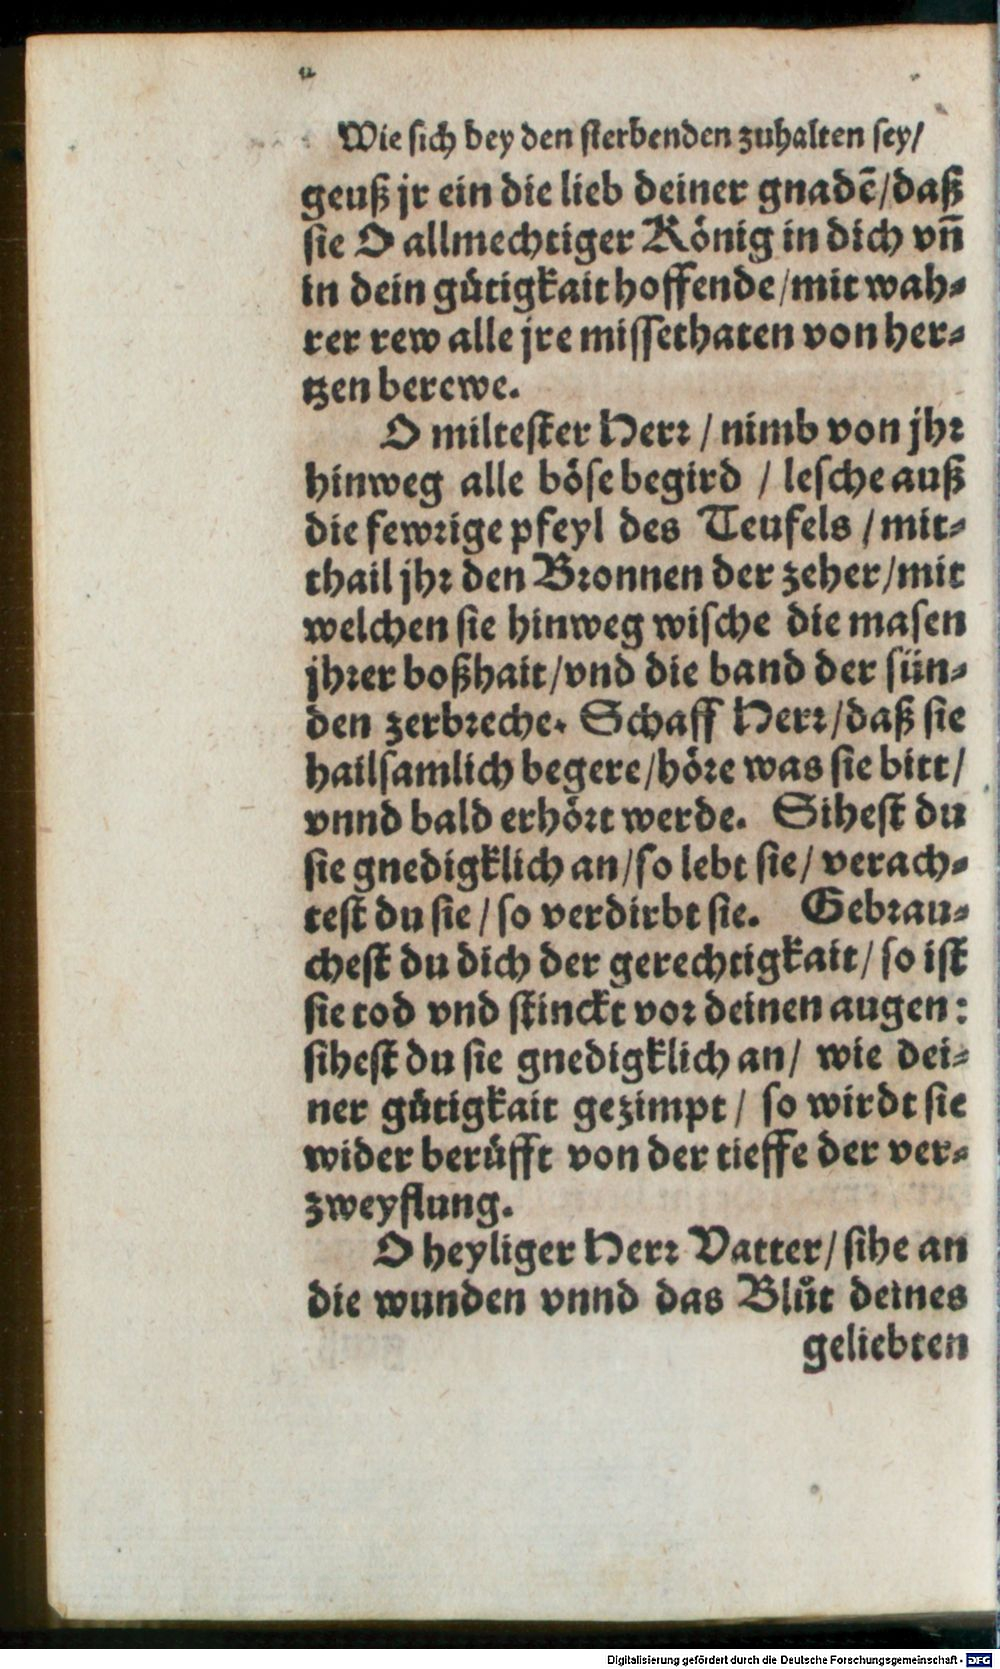 Wie sich bey den sterbenden zuhalten sey/
geuß jr ein die lieb deiner gnadē/daß
sie O allmechtiger König in dich vn̄
in dein gůtigkait hoffende/mit wah⸗
rer rew alle jre missethaten von her⸗
tzen berewe.
O miltester Herr / nimb von jhr
hinweg alle böse begird / lesche auß
die fewrige pfeyl des Teufels / mit⸗
thail jhr den Bronnen der zeher/mit
welchen sie hinweg wische die masen
jhrer boßhait/vnd die band der sün⸗
den zerbreche. Schaff Herr/daß sie
hailsamlich begere/höre was sie bitt/
vnnd bald erhört werde. Sihest du
sie gnedigklich an/so lebt sie/ verach⸗
test du sie / so verdirbt sie. Gebrau⸗
chest du dich der gerechtigkait/ so ist
sie tod vnd stinckt vor deinen augen:
sihest du sie gnedigklich an/ wie dei⸗
ner gůtigkait gezimpt / so wirdt sie
wider berůfft von der tieffe der ver⸗
zweyflung.
O heyliger Herr Vatter/ sihe an
die wunden vnnd das Blůt deines
geliebten
Digitalisierung gefördert durch die Deutsche Forschungsgemeinschaft - DFG